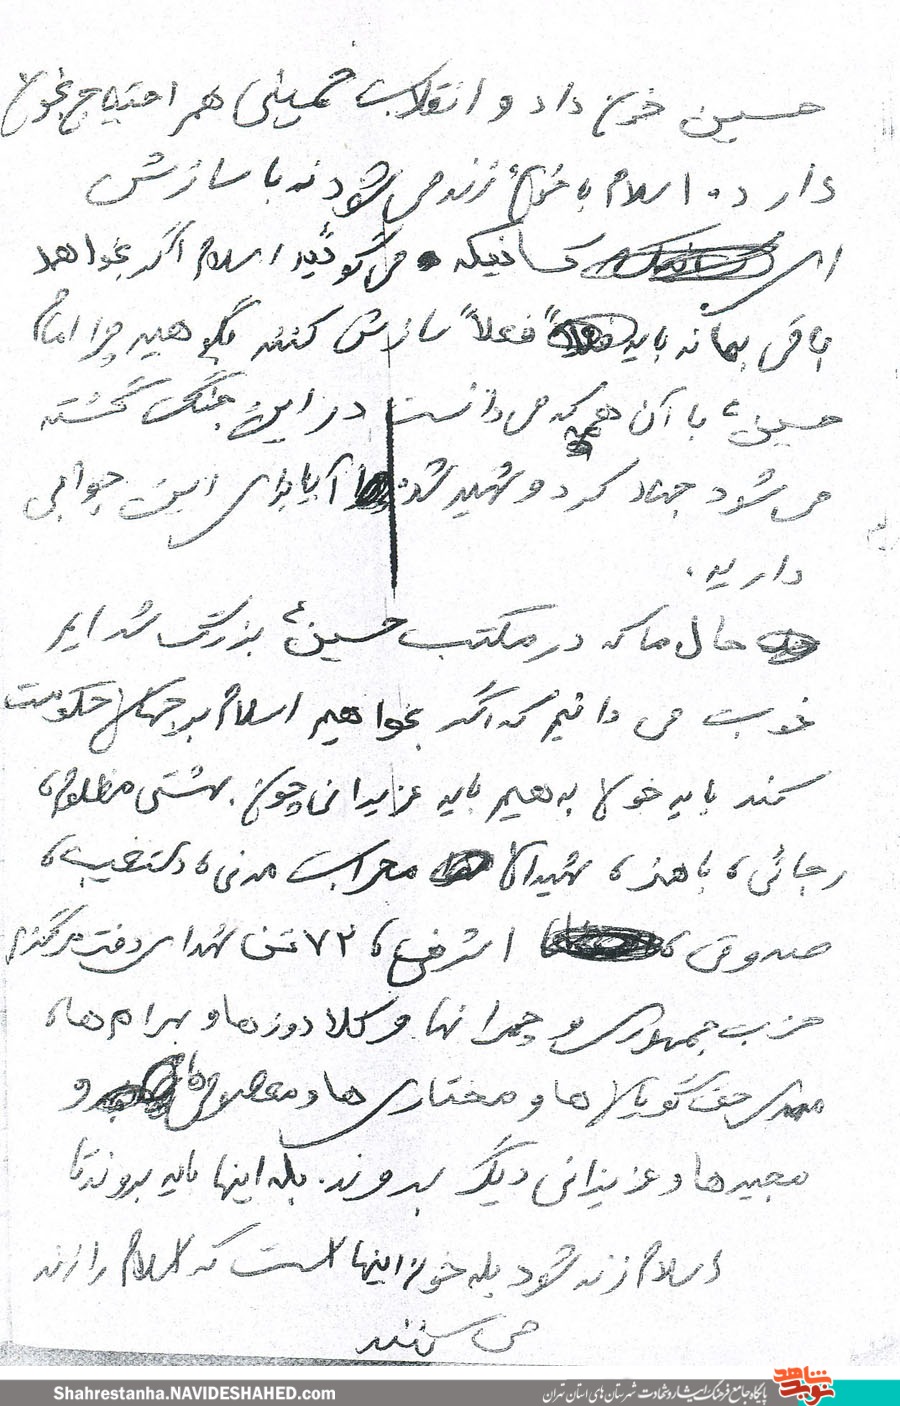 حسین خون داد و انقلاب خمینی هم احتیاج بخون
دارد. اسلام با خون زنده می شود نه با سازش
ای کسانیکه می گوئید اسلام اگر بخواهد
باقی بماند باید "فعلاً" سازش کند بگوهید چرا امام
حسین ع با آن همه که می دانست در این جنگ کشته
می شود جهاد کرد و شهید شد آیا برای این جوابی
دارید.
حال ما که در مکتب حسین ع بزرگ شد ایم
خوب می دانیم که اگر بخواهیم اسلام بر جهان حکومت
کند باید خون بدهیم باید عزیزانی چون بهشتی مظلوم،
رجائی، باهنر، شهیدان محراب مدنی، دستغیب،
صدوقی، اشرفی، ۷۲ تن شهدای دفتر مرکزی
حزب جمهوری و چمرانها و کلاهدوزها و بهرام ها،
مهدی حق گویان ها و مختاری ها و معصومی ها و
مجیدها و عزیزانی دیگر بروند. بله اینها باید بروند تا
اسلام زنده شود بله خون اینها است که اسلام را زنده
می کند
Shahrestanha.NAVIDESHAHED.com
پایگاه جامع فرهنگ ایثار و شهادت شهرستان های استان تهران
نوید شاهد